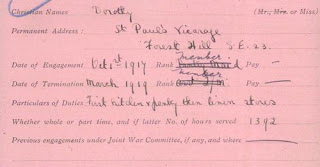 Christian Names Dorothy (Mr., Mrs. or Miss)
Permanent Address : St Paul's Vicarage
Forest Hill S.E. 23.
member
Date of Engagement Oct 1st 1917 Rank Pay -
member
Date of Termination March 1919 Rank Pay -
Particulars of Duties First kitchen & pantry then linen stores
Whether whole or part time, and if latter No. of hours served 1392
Previous engagements under Joint War Committee, if any, and where